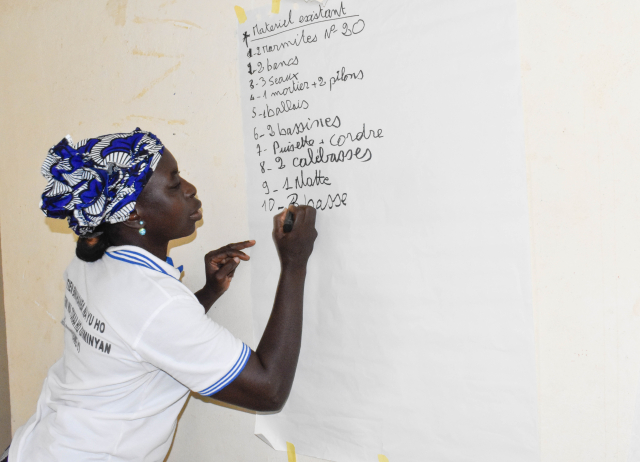 Materiel existant
1-2 Marmites N° 20
2-2 bancs
3-3 seaux
4-1 mortier+2 pilons
5-1 ballais
6-2 bassines
7- Puisette + cordre
8-2 calebasses
9-1 Natte
10-
YU HO